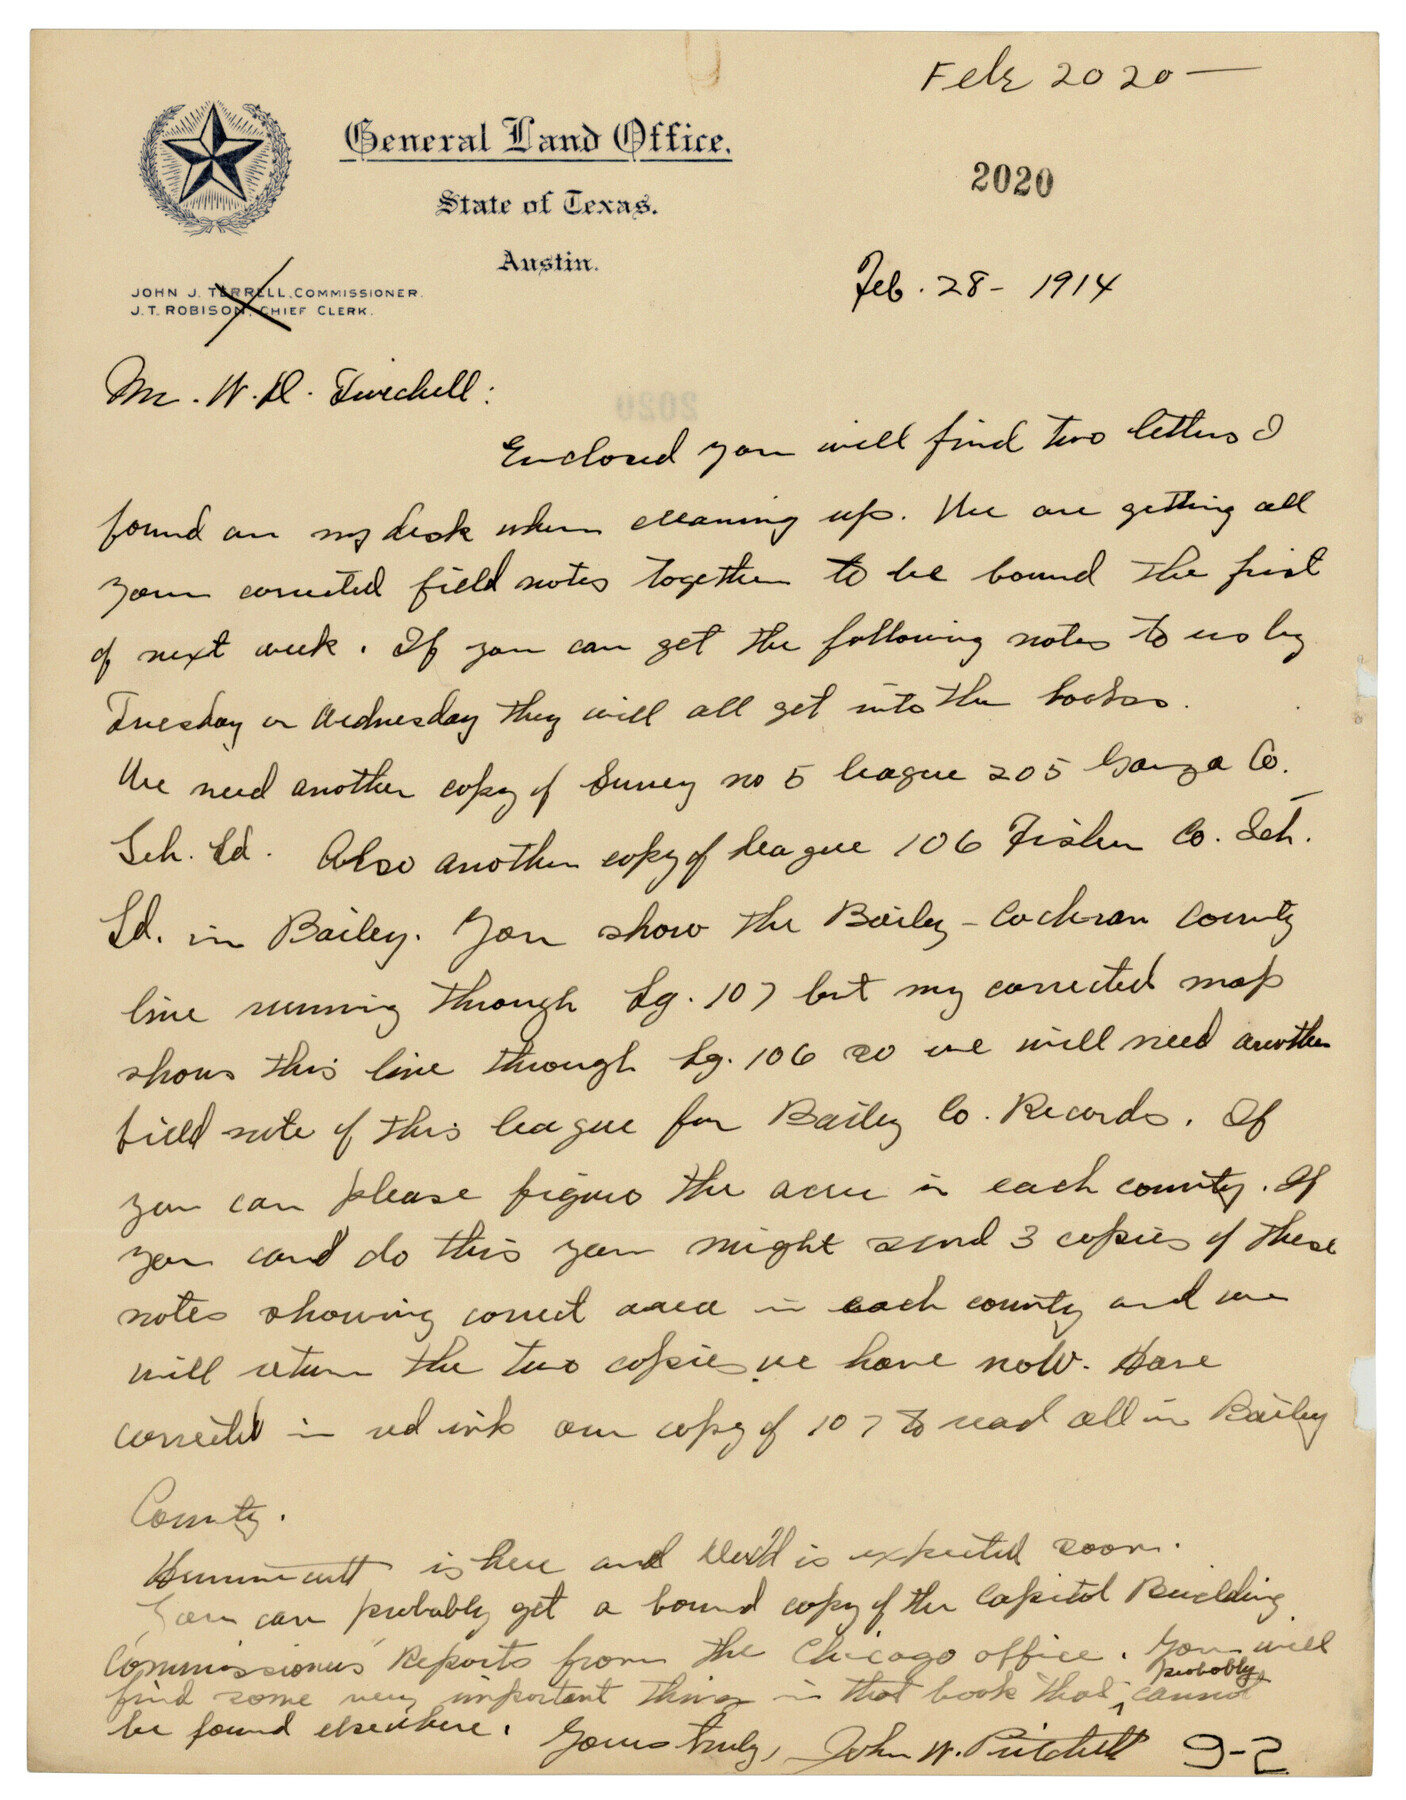 Feb 2020 —
General Land Office.
State of Texas.
Austin.
2020
JOHN J. TERRELL, COMMISSIONER.
J. T. ROBISON, CHIEF CLERK.
Feb. 28 - 1914
Mr. W. D. Twichell:
2020
Enclosed you will find two letters I
found on my desk when cleaning up. We are getting all
your corrected field notes together to be bound the first
of next week. If you can get the following notes to us by
Tuesday or Wednesday they will all get into the books.
We need another copy of Survey no 5 league 205 Garza Co.
Sch. Ld. Also another copy of league 106 Fisher Co. Sch.
Ld. in Bailey. You show the Bailey-Cochran County
line running through Lg. 107 but my corrected map
shows this line through Lg. 106 so we will need another
field note of this league for Bailey Co. Records. If
you can please figure the acre in each county. If
you do this you might send 3 copies of these
notes showing correct area in each county and we
will return the two copies we have now. Have
corrected in red ink our copy of 107 to read all in Bailey
County.
is here and is expected soon.
You can probably get a bound copy of the Capitol Building
Commissioners" Reports from the Chicago office. You will
find some very important things in that book that probably cannot
be found elsewhere. Yours truly, John W. Pritchett
9-2